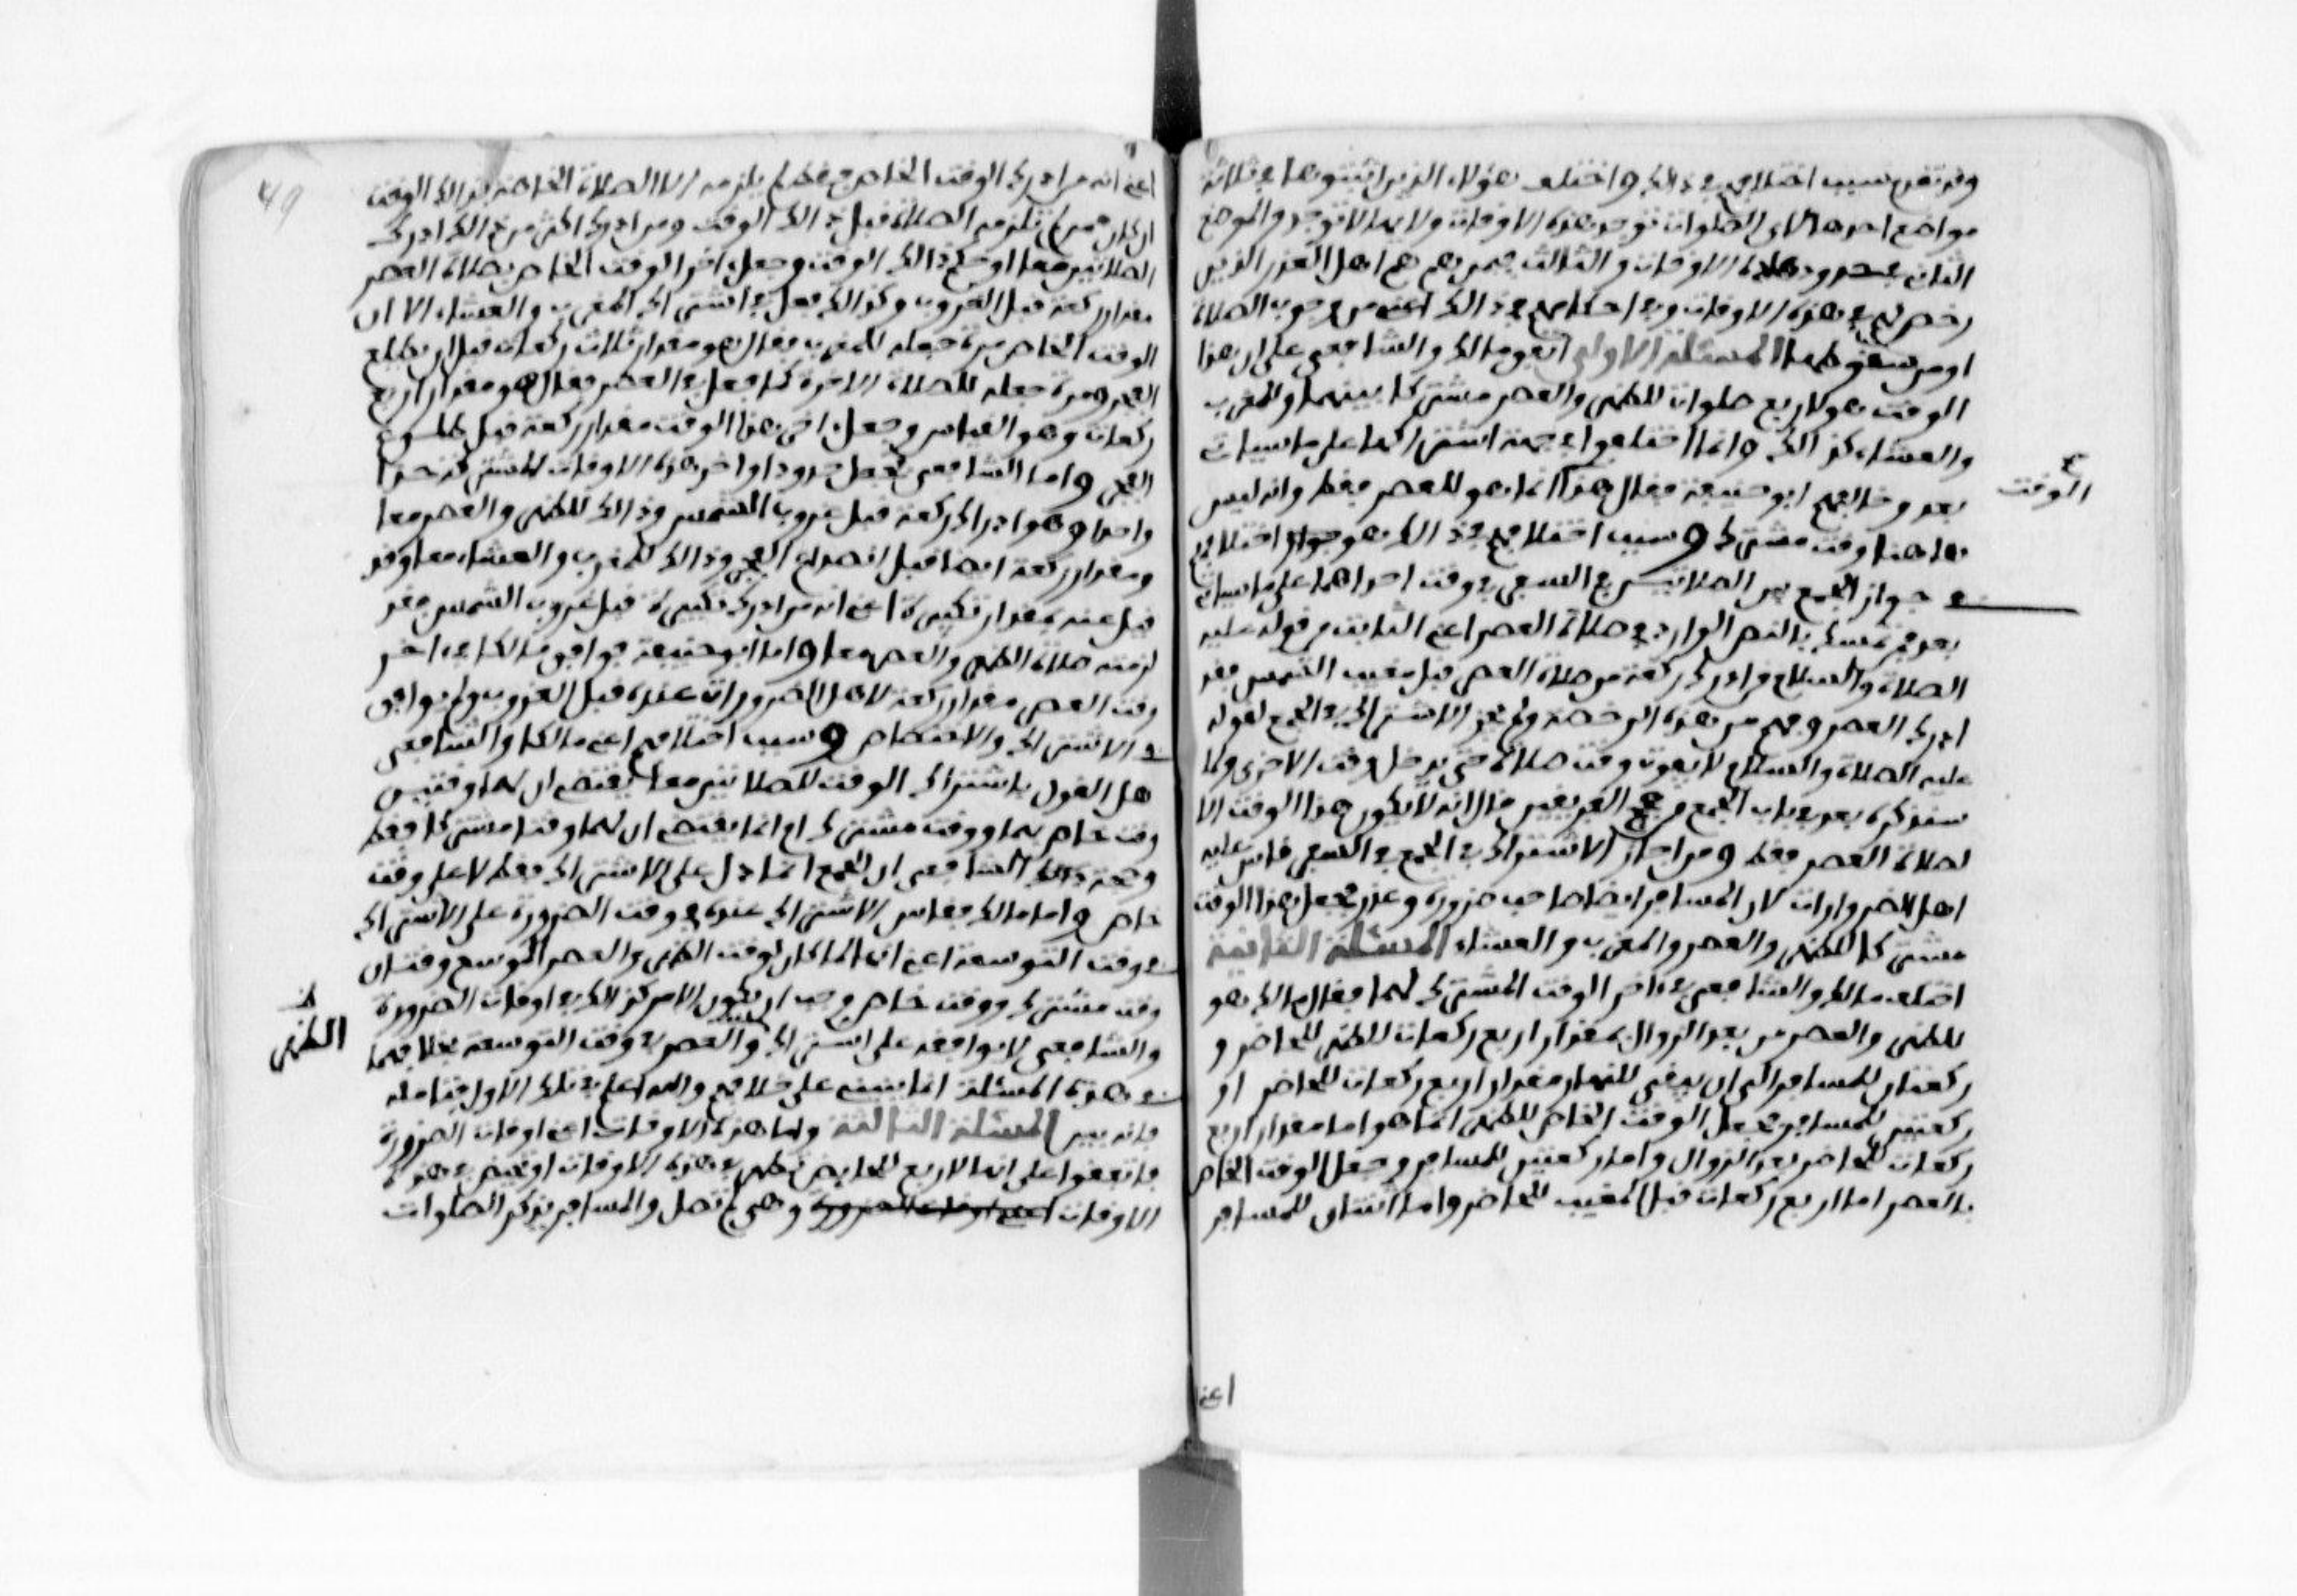 وقد تقدم سبب اختلافهم في ذلك واختلف هؤلاء الذين اثبتوها في ثلاثة
مواضع احدها لاي الصلوات توجد هذه الاوقات ولايها لا توجد والموضع
الثاني في حدود هذه الاوقات والثالث فيمن هم اهل العذر الذين
رخص لهم في هذه الاوقات وفي احكامهم في ذلك اعني من وجوب الصلاة
او من سقوطها المسئلة الاولى اتفق مالك والشافعي على ان هذا
الوقت هو لاربع صلوات للظهر والعصر مشتركا بينهما والمغرب
والعشاء كذلك وانما اختلفوا في جهة اشتراكهما على ما سيات
بعد وخالفهم ابو حنيفة فقال هذا انما هو للعصر فقط وانه ليس
هاهنا وقت مشترك وسبب اختلافهم في ذلك هو اختلافهم
في جواز الجمع بين الصلاتين في السفر في وقت احداهما على ما سيات
الوقت
بعد فمن تمسك بالنص الوارد في صلاة العصر اعني الثابت من قوله عليه
الصلاة والسلام من ادرك ركعة من صلاة العصر قبل مغيب الشمس فقد
ادرك العصر وفهم من هذه الرخصة ولم يجز الاشتراك في الجمع لقوله
عليه الصلاة والسلام لا يفوت وقت صلاة حتى يدخل وقت الاخرى ولما
سنذكره بعد في باب الجمع من حجج الفريقين قال انه لا يكون هذا الوقت الا
لصلاة العصر فقط ومن اجاز الاشتراك في الجمع في السفر قاس عليه
اهل الضرورات لان المسافر ايضا صاحب ضرورة وعذر فجعل هذا الوقت
مشتركا للظهر والعصر والمغرب والعشاء المسئلة الثانية
اختلف مالك والشافعي في اخر الوقت المشترك لهما فقال مالك هو
للظهر والعصر من بعد الزوال بمقدار اربع ركعات للظهر للحاضر و
ركعتان للمسافر الى ان يبقى للنهار مقدار اربع ركعات للحاضر او
ركعتين للمسافر فجعل الوقت الخاص للظهر انما هو اما مقدار اربع
ركعات للحاضر بعد الزوال واما ركعتين للمسافر وجعل الوقت الخاص
بالعصر اما اربع ركعات قبل المغيب للحاضر واما اثنتان للمسافر
اعني
49
اعني انه من ادرك الوقت الخاص فقط لم يلزمه الا الصلاة الخاصة بذلك الوقت
ان كان ممن لم تلزمه الصلاة قبل ذلك الوقت ومن ادرك اكثر من ذلك ادرك
الصلاتين معا او حكم ذلك الوقت وجعل اخر الوقت الخاص بصلاة العصر
مقدار ركعة قبل الغروب وكذلك فعل في اشتراك المغرب والعشاء الا ان
الوقت الخاص مرة جعله للمغرب فقال هو مقدار ثلاث ركعات قبل ان يطلع
الفجر ومرة جعله للصلاة الاخرة كما فعل في العصر فقال هو مقدار اربع
ركعات وهو القياس وجعل اخر هذا الوقت مقدار ركعة قبل طلوع
الفجر واما الشافعي فجعل حدود اواخر هذه الاوقات المشتركة حدا
واحدا وهو ادراك ركعة قبل غروب الشمس وذلك للظهر والعصر معا
ومقدار ركعة ايضا قبل انصداع الفجر وذلك للمغرب والعشاء معا وقد
قيل عنه بمقدار تكبيرة اعني انه من ادرك تكبيرة قبل غروب الشمس فقد
لزمته صلاة الظهر والعصر معا واما ابو حنيفة فوافق مالكا في اخر
وقت العصر مقدار ركعة لاهل الضرورات عنده قبل الغروب ولم يوافق
في الاشتراك والاختصاص وسبب اختلافهم اعني مالكا والشافعي
هل القول باشتراك الوقت للصلاتين معا يقتضي ان لهما وقتين
وقت خاص بهما ووقت مشترك ام انما يقتضي ان لهما وقتا مشتركا فقط
وحجة الشافعي ان الجمع انما دل على الاشتراك فقط لا على وقت
خاص واما مالك فقاس الاشتراك عنده في وقت الضرورة على الاشتراك
في وقت التوسعة اعني انه لما كان لوقت الظهر والعصر الموسع وقتان
وقت مشترك ووقت خاص وجب ان يكون الامر كذلك في اوقات الضرورة
والشافعي لا يوافقه على اشتراك والعصر في وقت التوسعة فخلافهما
الظهر
في هذه المسئلة انما ينبني على خلافهم والله اعلم في تلك الاولى فتامله
فانه بين المسئلة الثالثة واما هذه الاوقات اعني اوقات الضرورة
فاتفقوا على انها لاربع للحايض تطهر في هذه الاوقات او تحيض في هذه
الاوقات اعني اوقات الضرورة وهي لم تصل والمسافر يذكر الصلوات